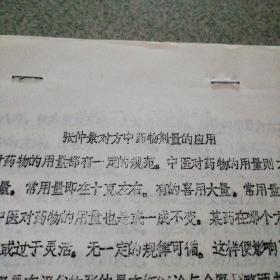 张仲景对方中药物剂量的应用
对药物的用量都有一定的规范。中医对药物的用量则
量。常用量即在十克左右。有的喜用大量。常用量
中医对药物的用量也是或一成不变。某药在哪个方
或过于灵活。无一定的规律可循。这样便影响